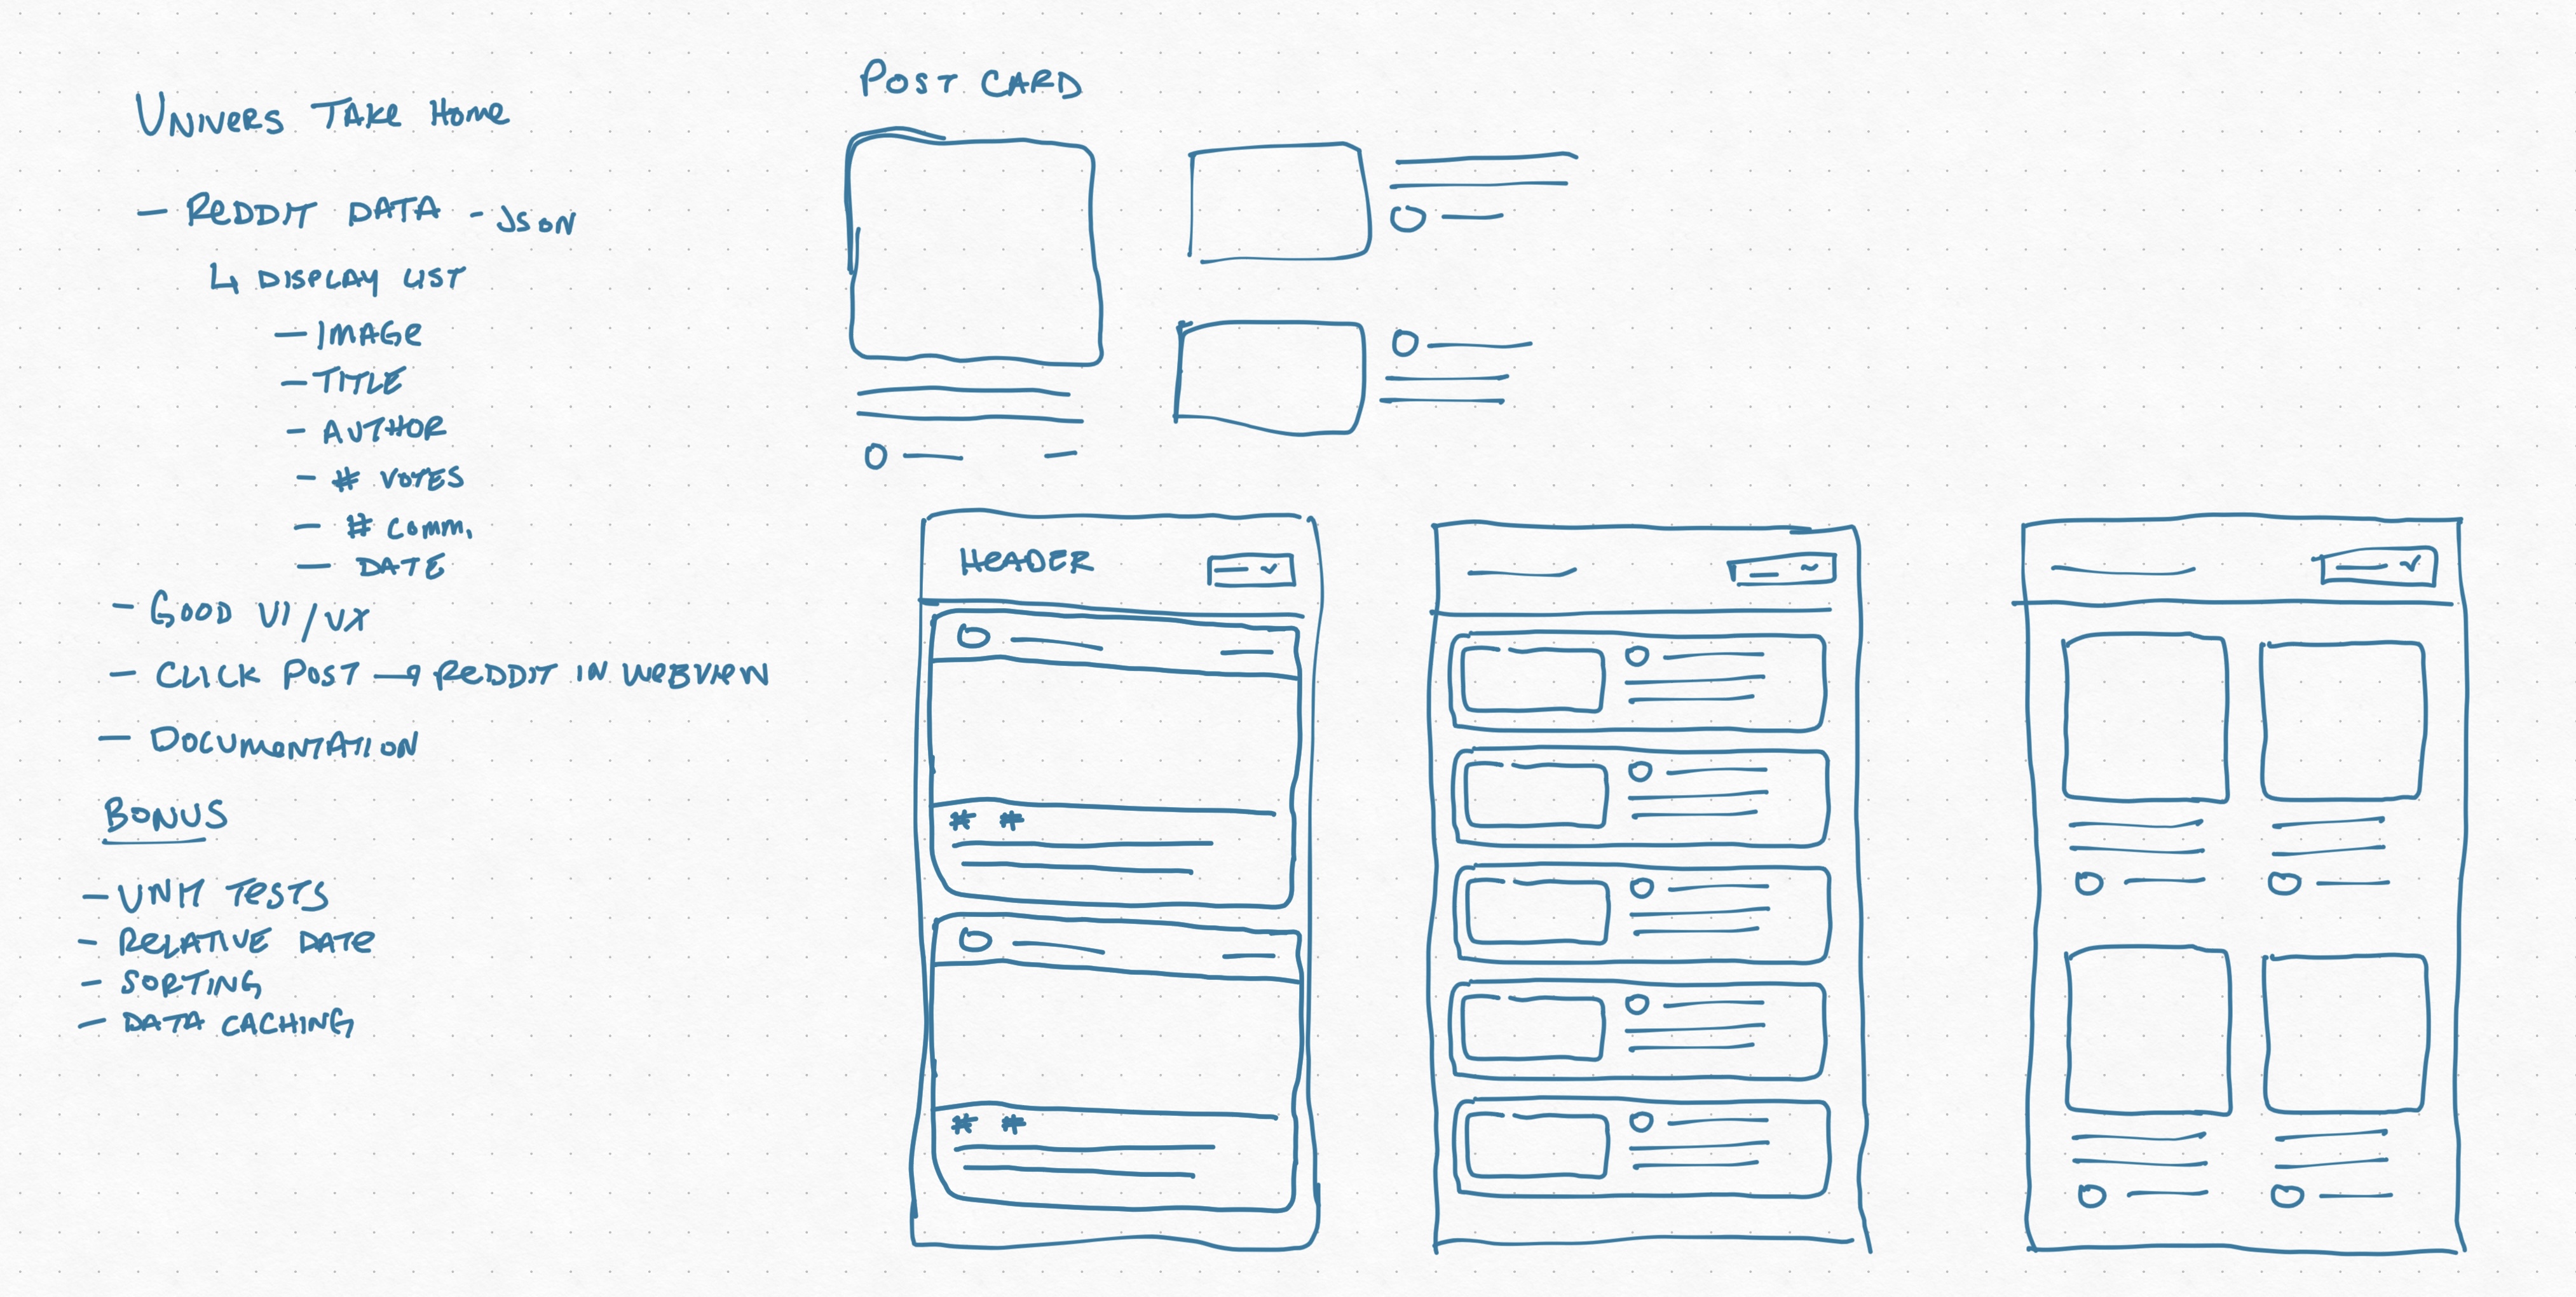 UNIVERS TAKE HOME
- REDDIT DATA - JSON
↳ DISPLAY LIST
- IMAGE
- TITLE
- AUTHOR
- # VOTES
- # COMM.
- DATE
- GOOD UI/UX
- CLICK POST → REDDIT IN WEBVIEW
- DOCUMENTATION
BONUS
- UNIT TESTS
- RELATIVE DATE
- SORTING
- DATA CACHING
POST CARD
HEADER